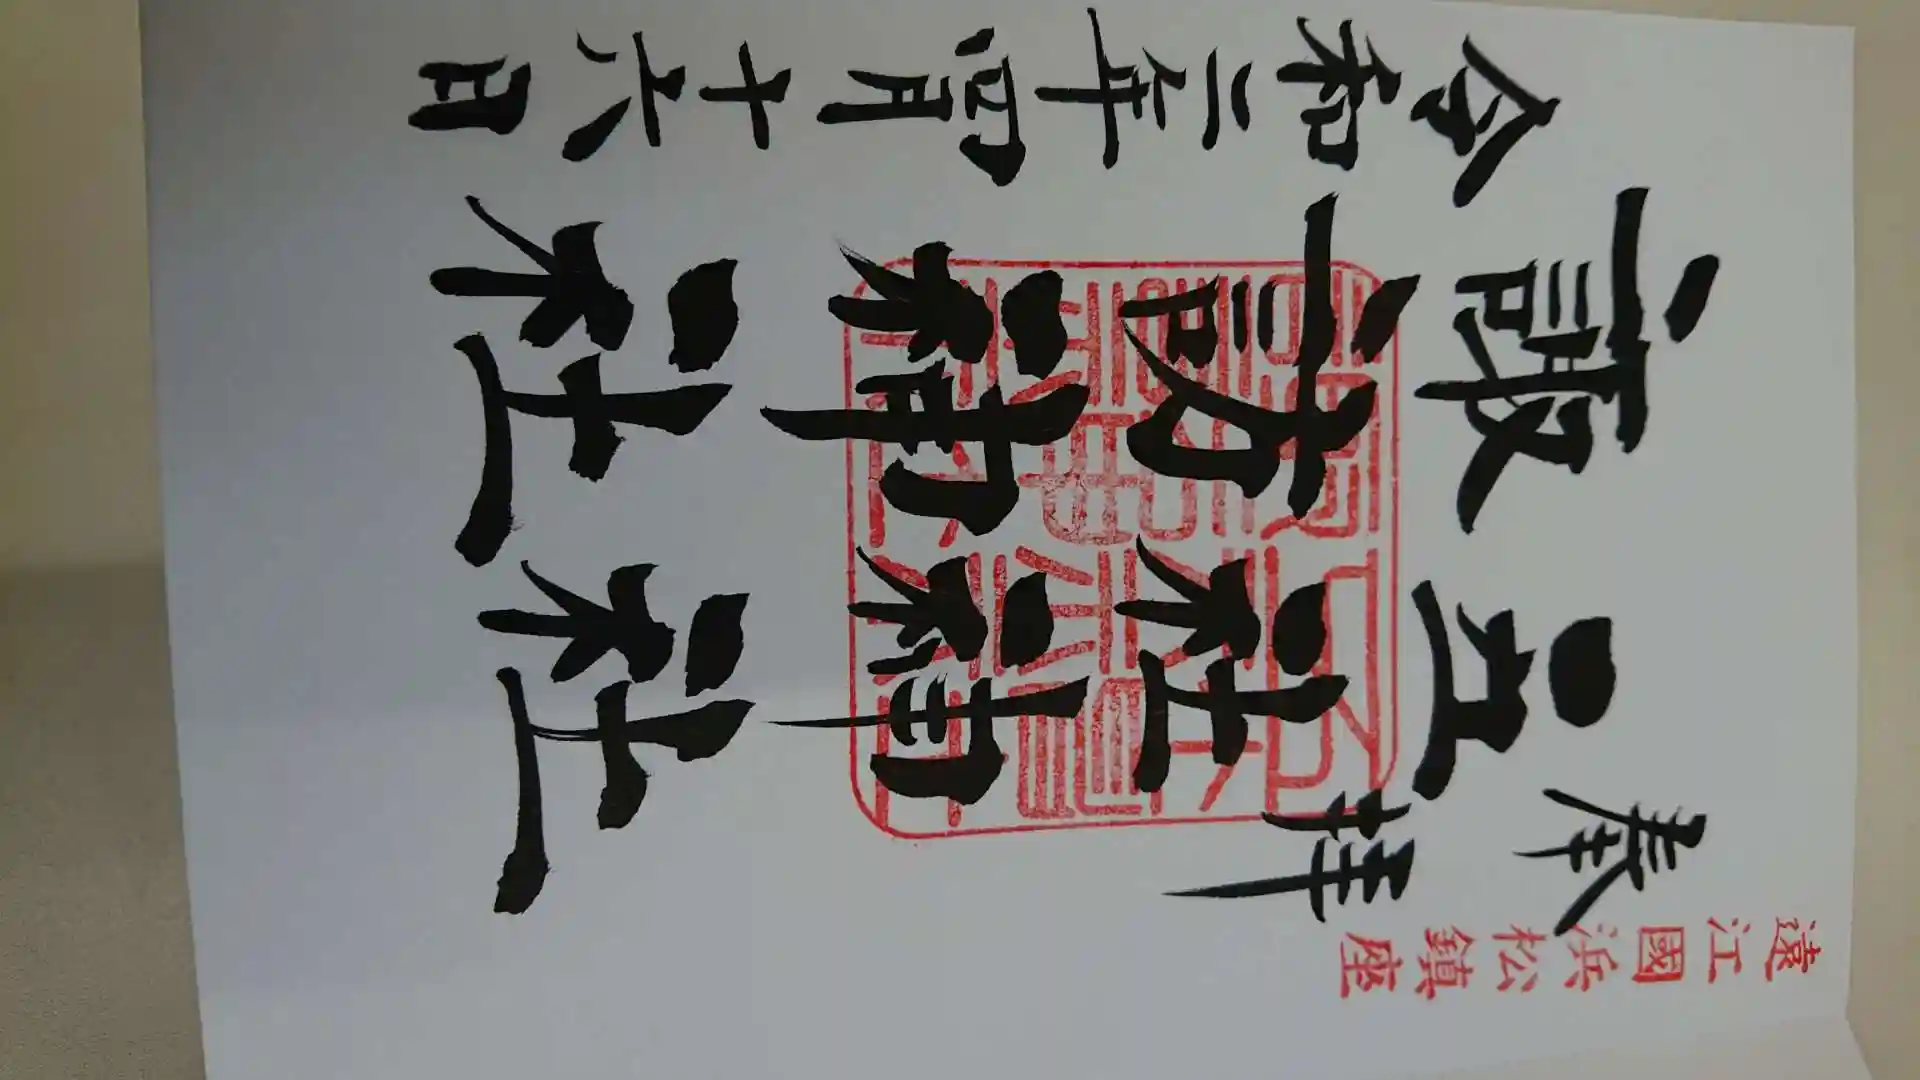 遠江國浜松鎮座
奉拝
五社神社
諏訪神社
令和二年四月十六日